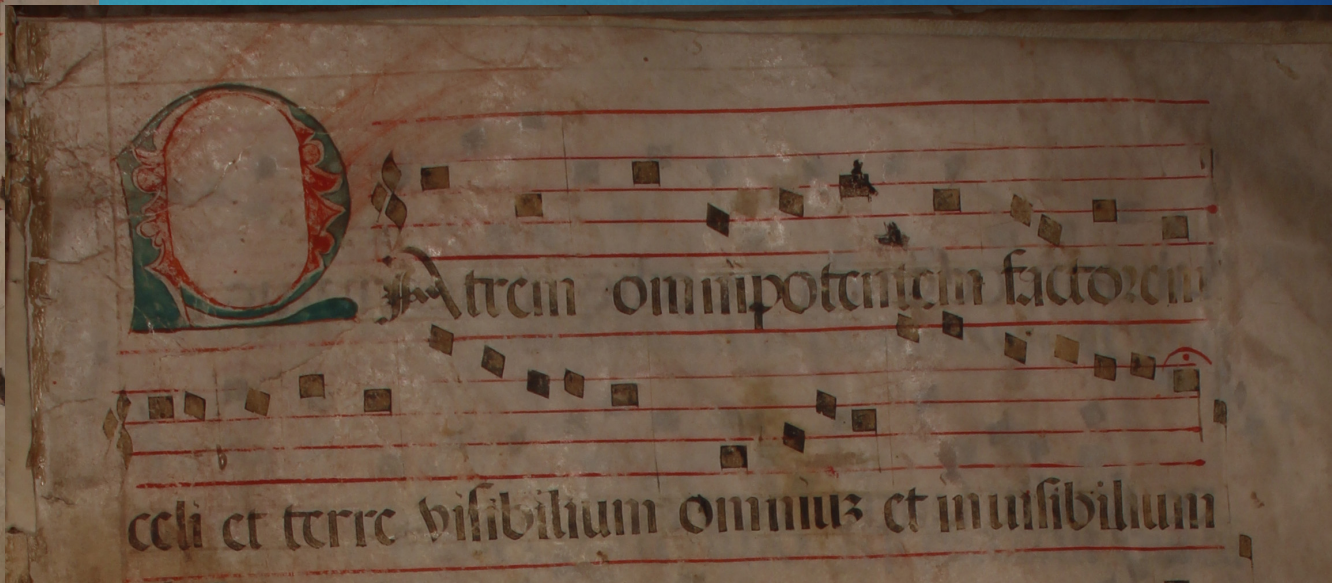 PAtrem omnipotentem factorem
celi et terre visibilium omniuȝ et inuisibilium